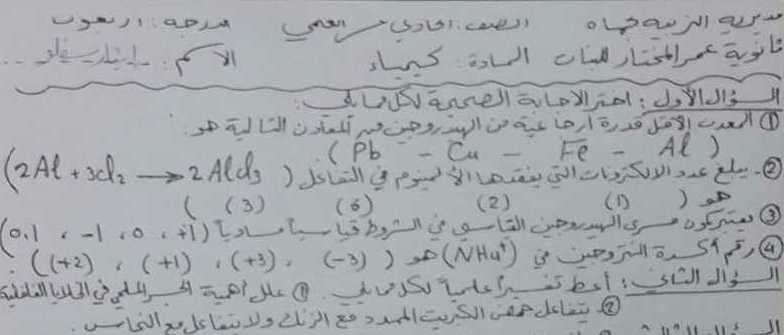 مديرية التربية بحماه الصف: الحادي عشر العلمي الدرجة: أربعون
ثانوية عمر المختار للبنات المادة: كيمياء الاسم:
السؤال الأول: اختر الإجابة الصحيحة لكل مما يلي:
① المعدن الأقل قدرة إرجاعية من الهيدروجين من المعادن التالية هو:
( Pb - Cu - Fe - Al )
②- يبلغ عدد الالكترونات التي يفقدها الألمنيوم في التفاعل ( 2Al + 3Cl₂ → 2AlCl₃ )
هو ( (1) (2) (6) (3) )
③ يعتبر كمون مسرى الهيدروجين القياسي في الشروط قياسياً مساوياً (+1 ، 0 ، -1 ، 0.1)
④ رقم أكسدة النتروجين في (NH₄⁺) هو ( (-3) ، (+3) ، (+1) ، (+2) )
السؤال الثاني: أعط تفسيراً علمياً لكل مما يلي. ① علل أهمية الجسر الملحي في الخلايا الغلفانية
② يتفاعل حمض الكبريت الممدد مع الزنك ولا يتفاعل مع النحاس.